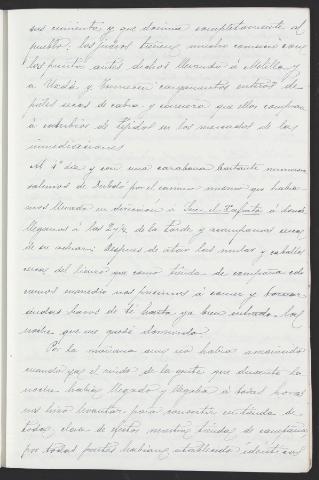 sus cimientos y que domina completamente al
pueblo; los judios tienen mucho comercio con
los puntos antes dichos llevando á Melilla y
a Uxda y Tremecen cargamentos enteros de
pieles secas de cabra y carnero que ellos compran
á cambio de tejidos en los mercados de las
inmediaciones
Al 4º dia y con una caravana bastante numerosa
salimos de Debdú por el camino mismo que habia
mos llevado en direccion á
llegamos á las 2 y ½ de la tarde y acampamos cerca
de su aduar; despues de atar los mulos y caballos
cerca del lienzo que como tienda de campaña colo
camos enmedio nos pusimos á comer y tomar
tazas de té hasta ya bien entrada la
noche que me quedé dormido.
Por la mañana aun no habia amanecido
cuando ya el ruido de la gente que durante la
noche habia llegado y llegaba á todas horas
me hizo levantar para convertir en tienda de
toda clase de efectos nuestra tienda de campaña
por todas partes habian establecido identicas